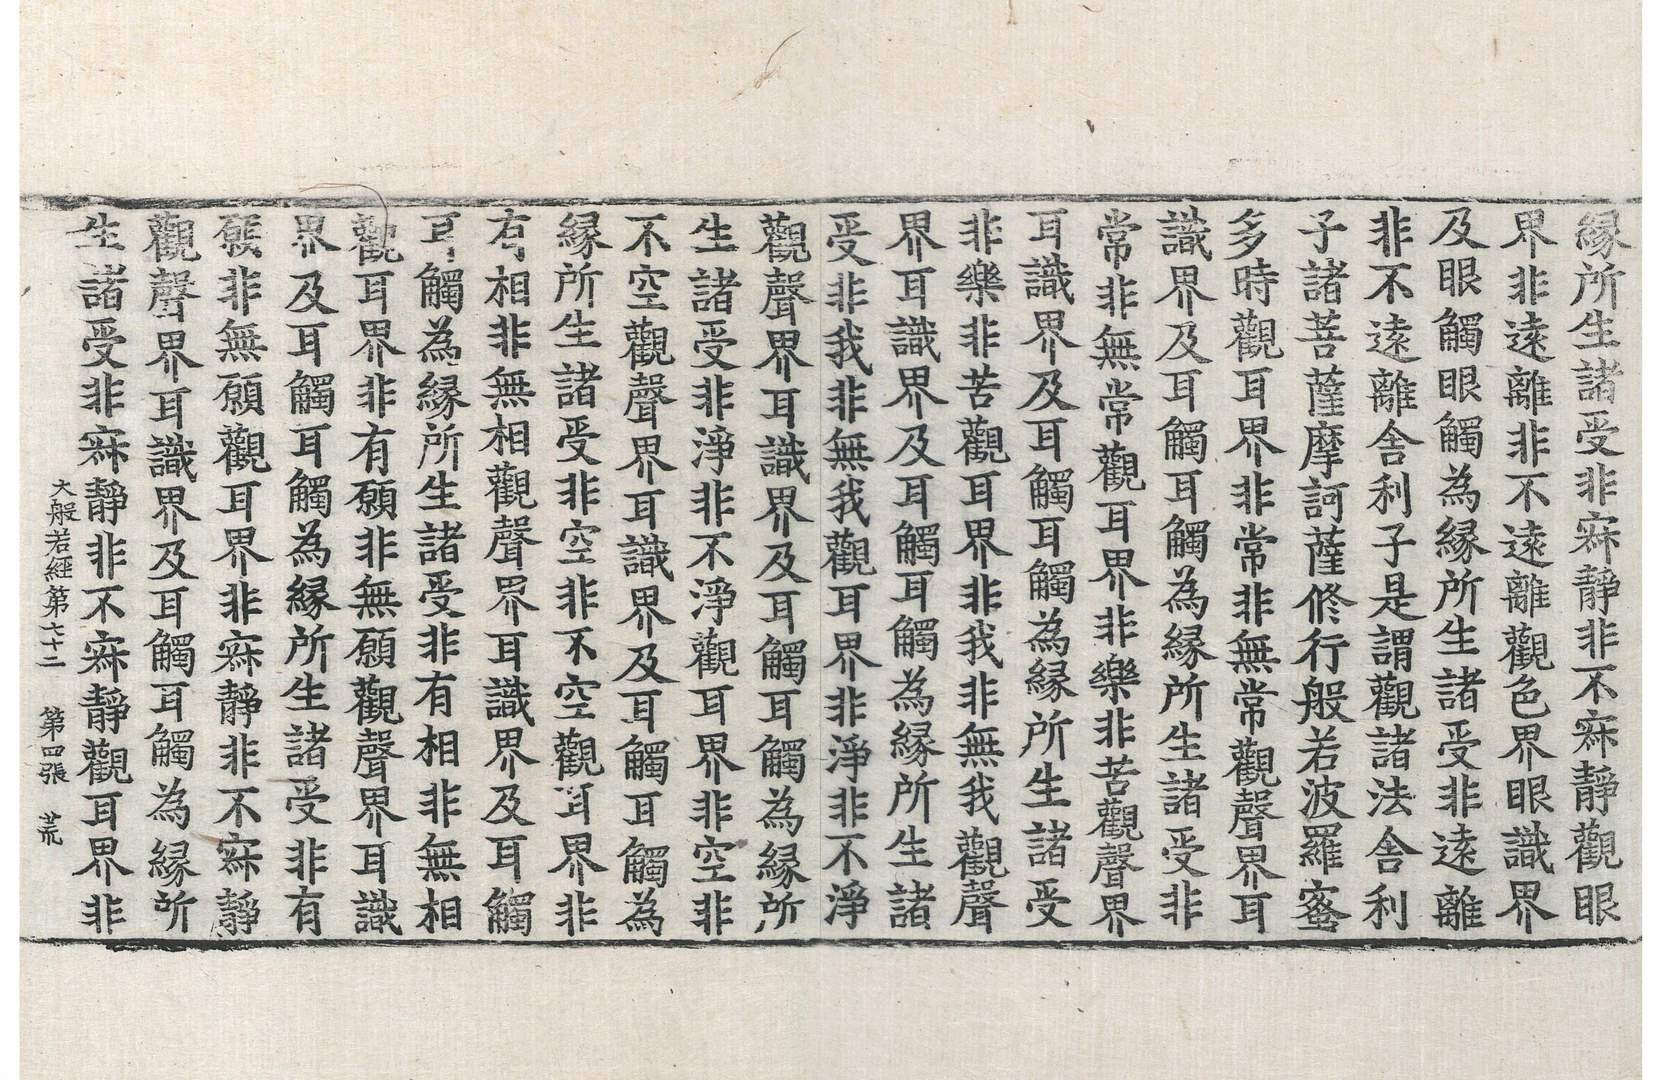 縁所生諸受非寂靜非不寂靜觀眼
界非遠離非不遠離觀色界眼識界
及眼觸眼觸為縁所生諸受非遠離
非不遠離舍利子是謂觀諸法舍利
子諸菩薩摩訶薩修行般若波羅蜜
多時觀耳界非常非無常觀聲界耳
識界及耳觸耳觸為縁所生諸受非
常非無常觀耳界非樂非苦觀聲界
耳識界及耳觸耳觸為縁所生諸受
非樂非苦觀耳界非我非無我觀聲
界耳識界及耳觸耳觸為縁所生諸
受非我非無我觀耳界非淨非不淨
觀聲界耳識界及耳觸耳觸為縁所
生諸受非淨非不淨觀耳界非空非
不空觀聲界耳識界及耳觸耳觸為
縁所生諸受非空非不空觀耳界非
有相非無相觀聲界耳識界及耳觸
耳觸為縁所生諸受非有相非無相
觀耳界非有願非無願觀聲界耳識
界及耳觸耳觸為縁所生諸受非有
願非無願觀耳界非寂靜非不寂靜
觀聲界耳識界及耳觸耳觸為縁所
生諸受非寂靜非不寂靜觀耳界非
大般若經第七十二 第四張 荒